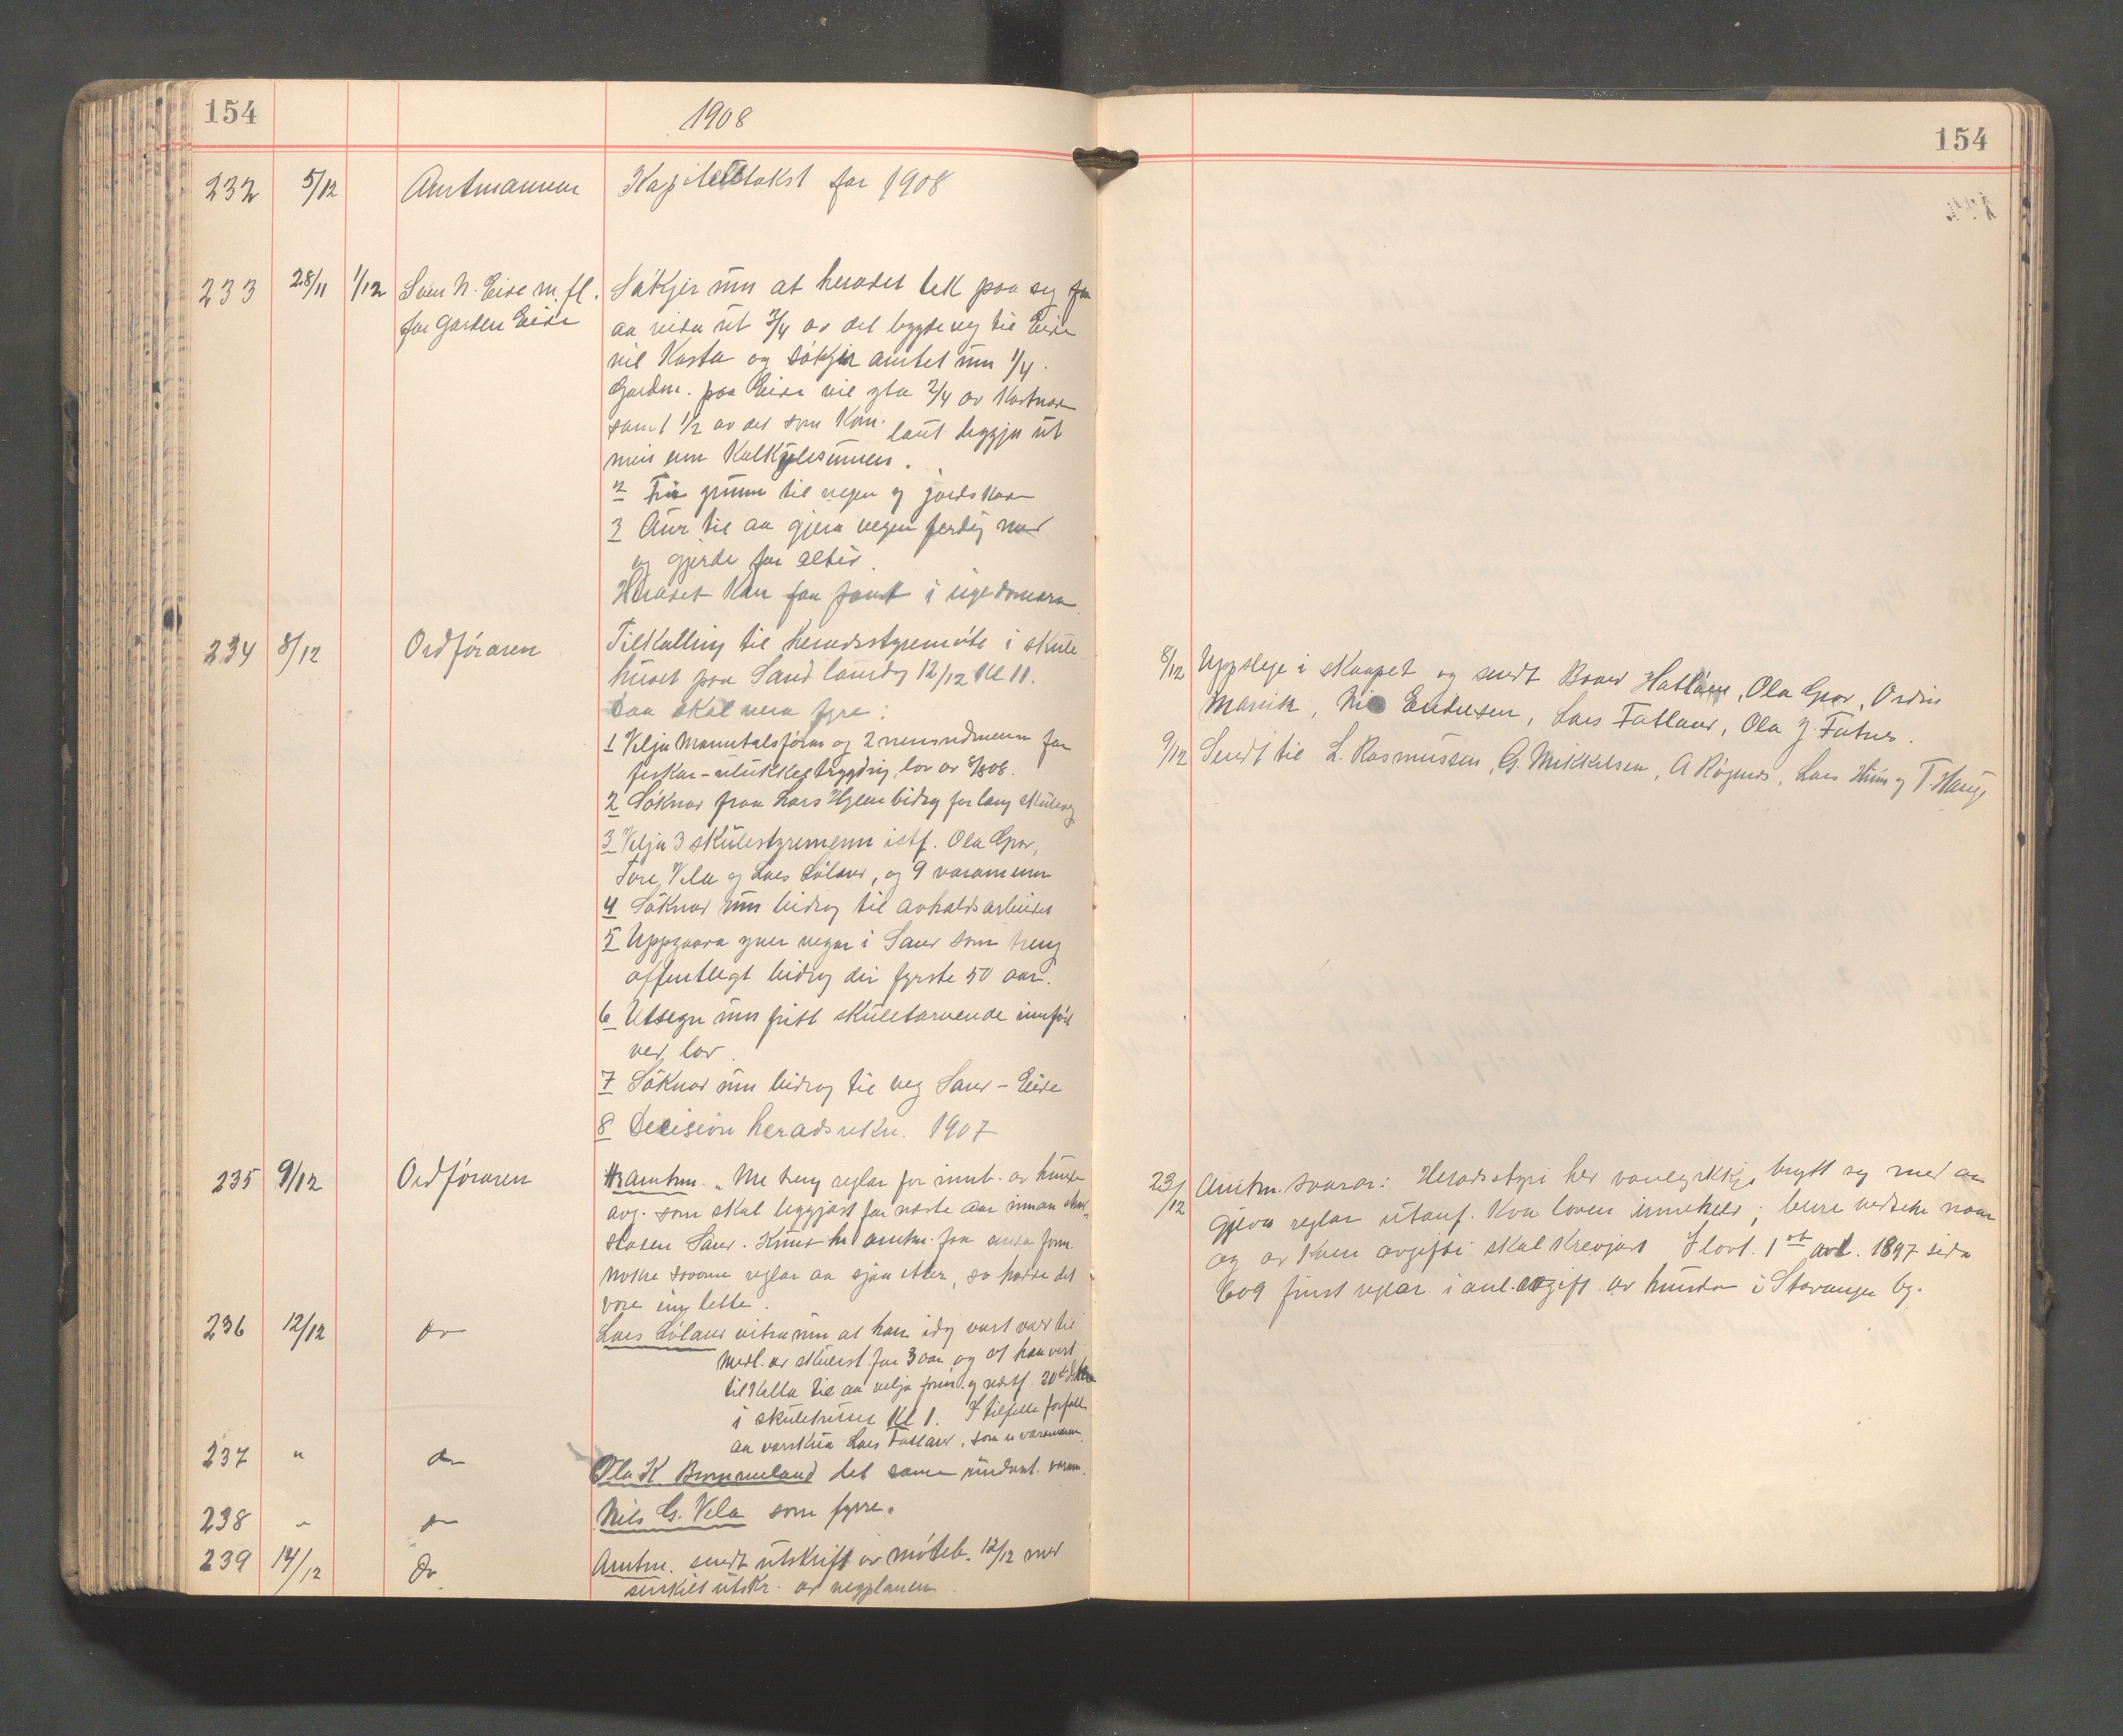 154
1908
232 5/12 Amtmannen Kapiteltakst for 1908
233 28/11 1/12 Sven N. Eide m. fl. Søkjer um at heradet tek paa seg
for garden Eide aa reida ut 3/4 av det bygdeveg til Eide
vil kosta og søkjer amtet um 1/4.
Gardm. paa Eide vil yta 2/4 av kostnad
samt 1/2 av det som Kom. laut leggja ut
meir enn kalkylesummen.
2 Fri grunn til vegen og jordskade
3 Aur til aa gjera vegen ferdig med
og gjerde for altid.
Heradet kan faa pant i eigedomarne.
234 8/12 Ordføraren Tilkalling til heradsstyremøte i skule
huset paa Sand laurdag 12/12 kl 11.
Daa skal vera fyre:
1 Velja Manntalsførar og 2 nemndmenn for
fiskar-ulukketrygding, lov av 8/8 08.
2 Søknad fraa Lars Hylen bidrag for lang skuleveg
3 Velja 3 skulestyremenn istf. Ola Gjør,
Tore Vela og Lars Løland, og 9 varamenn
4 Søknad um bidrag til avhaldsarbeidet
5 Uppgaava yver vegar i Sand som treng
offentlegt bidrag dei fyrste 50 aar.
6 Utsegn um fritt skuletarvende innført
ved lov.
7 Søknad um bidrag til veg Sand - Eide
8 Decision heradsrekn. 1907
235 9/12 Ordføraren Hr amtm. "Me treng reglar for innb. av hunde
avg. som skal leggjast for næste aar innan
staden Sand. Kunde hr amtm. faa senda form.
noko sovorne reglar aa sjaa etter, so hadde det
vore ein lette.
236 12/12 do Lars Løland vitra um at han idag vart vald til
medl. av skulest. for 3 aar og at han vert
tilkalla til aa velja form. og næstf. 20de ds.
i skulehuset kl 1. I tilfelle forfall
aa varskua Lars Fatland, som er varamann.
237 " do Ola K. Brommeland det same undant. varam.
238 " do Nils G. Vela som fyrre.
239 14/12 do Amtm. sendt utskrift av møteb. 12/12 med
serskilt utskr. av vegplanen.
154
8/12 Uppslege i skaapet og sendt Baard Hatløen, Ola Gjør, Ordin
Marvik, Nils Endresen, Lars Fatland, Ola J. Fatnes.
9/12 Sendt til L. Rasmussen, G. Mikkelsen, A Røgenes, Lars Hiim og T. Hauge
23/12 Amtm. svarar: Heradsstyri hev vanlegvis ikkje brytt seg med aa
gjeva reglar utanf. kva loven inneheld; berre vedteke naar
og av kven avgifti skal krevjast I lovt. 1ste avd. 1897 sida
609 finst reglar i anl. avgift av hundar i Stavanger by.